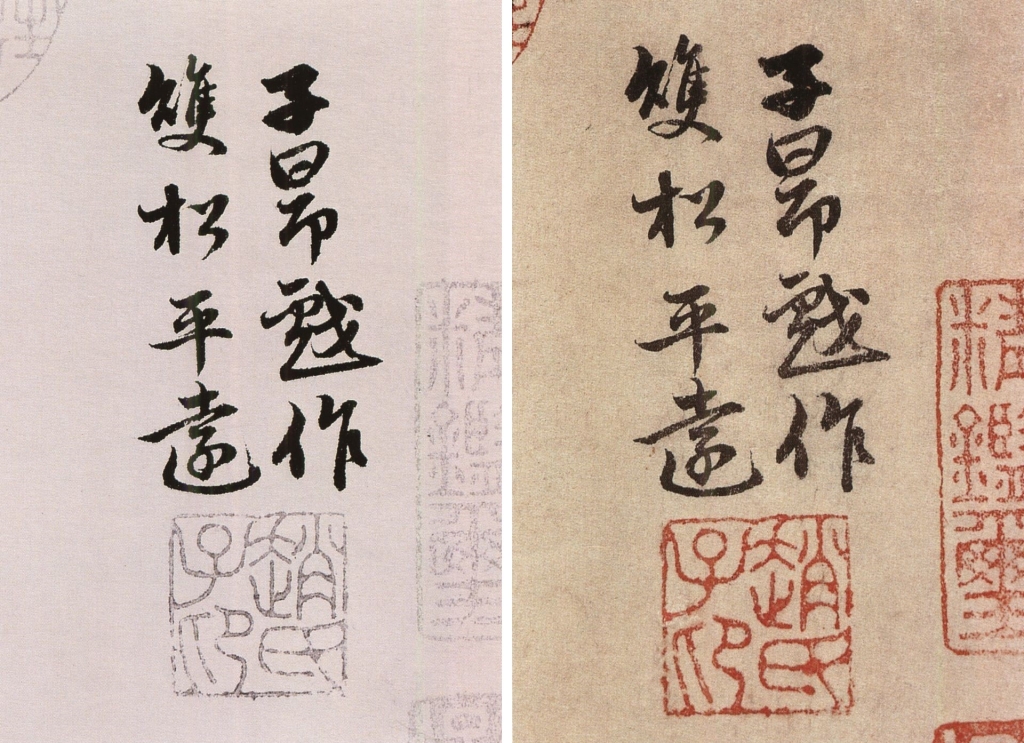 子昂戲作
雙松平遠
趙氏
子卬
精鑑璽
子昂戲作
雙松平遠
趙氏
子卬
精鑑璽